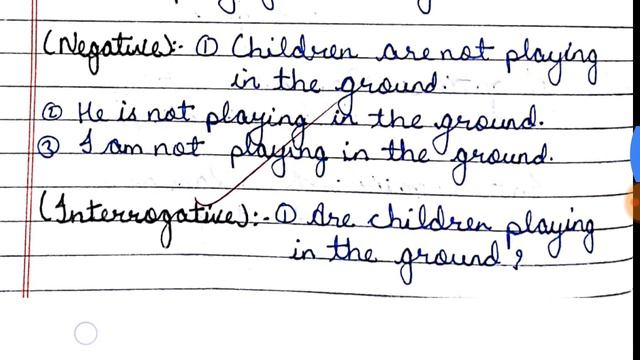 (Negative):- ① Children are not playing
in the ground.
② He is not playing in the ground.
③ I am not playing in the ground.
(Interrogative):- ① Are children playing
in the ground?